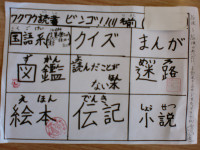 ワクワク読書 ビンゴ!!!!
国語系 クイズ まんが
ずかん
図鑑 読んだことがない本 迷路
えほん でんき しょうせつ
絵本 伝記 小説